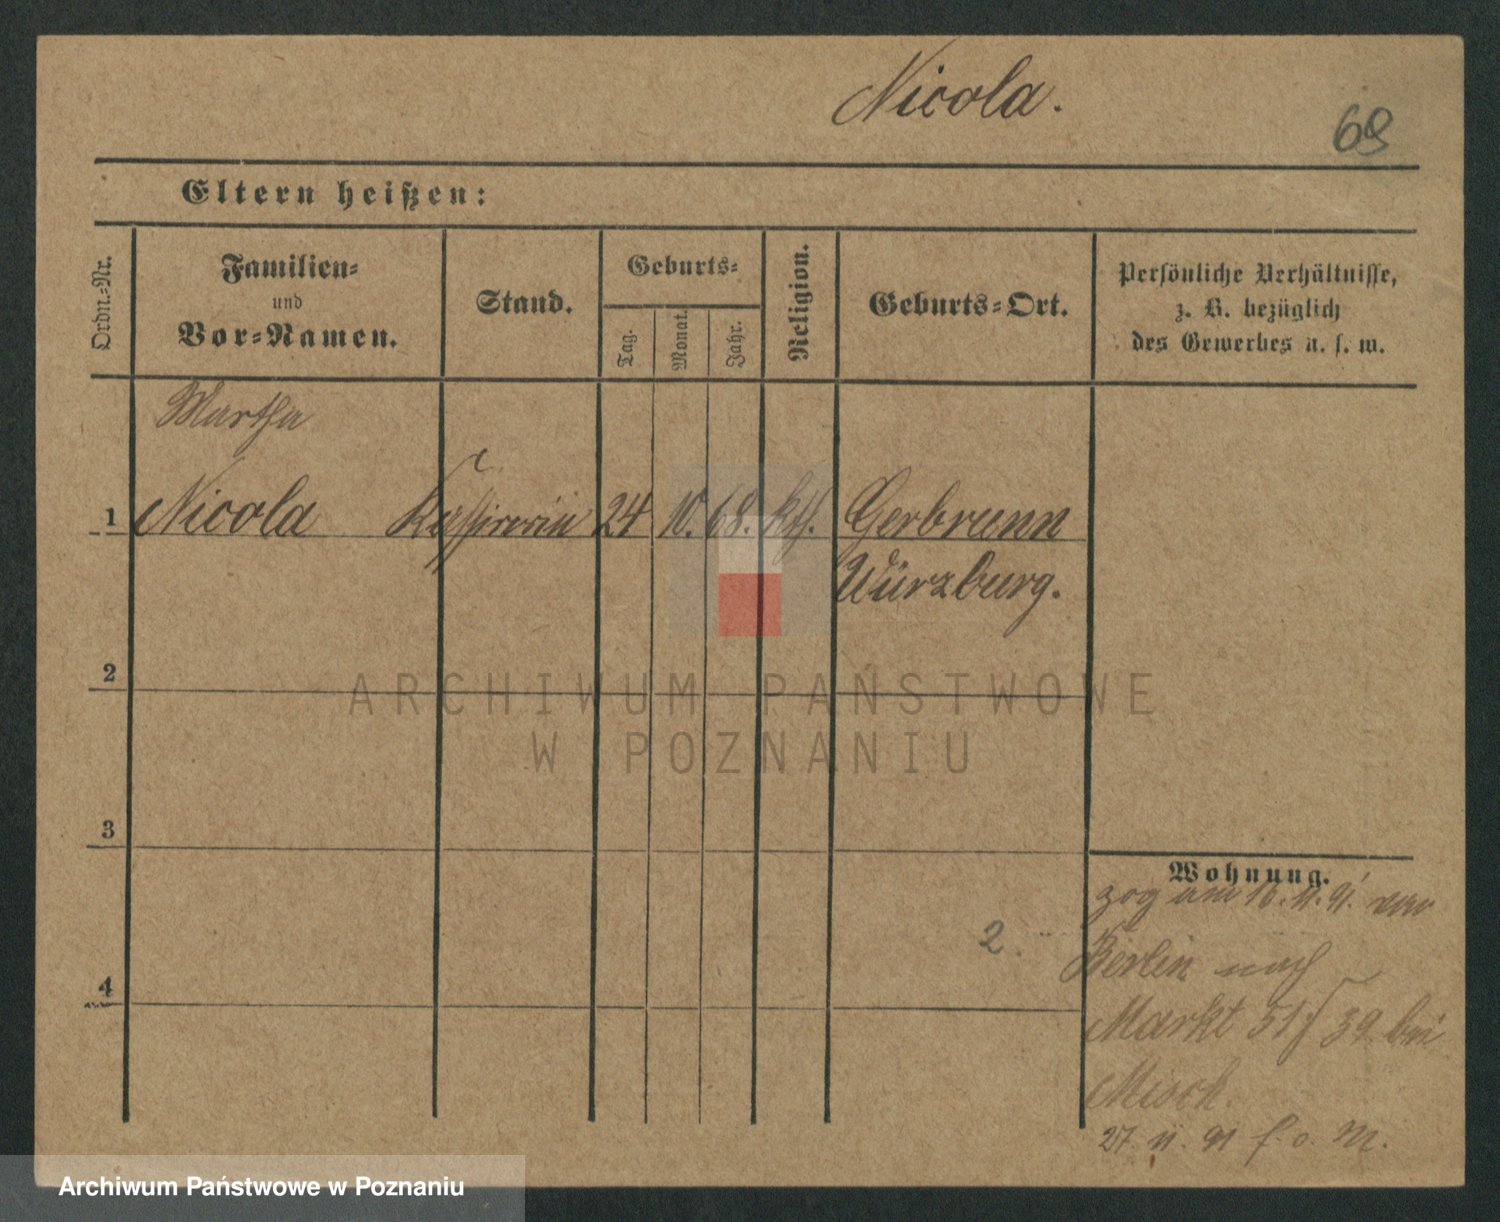 Nicola.
69
Eltern heißen:
Ordn.-Nr.
Familien-
und
Vor-Namen.
Stand.
Geburts-
Tag.
Monat.
Jahr.
Religion.
Geburts-Ort.
Persönliche Verhältnisse,
z. B. bezüglich
des Gewerbes u. s. w.
Martha
1 Nicola Kassirerin 24 10. 68. kth. Gerbrunn
Würzburg.
2
ARCHIWUM PAŃSTWOWE
W POZNANIU
3
Wohnung.
zog am 16. 11. 91. von
2.
Berlin nach
4
Markt 51/39 bei
Misch.
27. 11. 91 f. o. M.
Archiwum Państwowe w Poznaniu